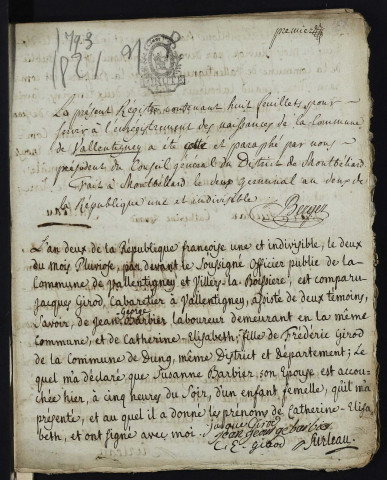 premier
1793
Le présent Registre contenant huit feuillets, pour
servir à l'enregistrement des naissances de la Commune
de Vallentigney a été cotté et paraphé par nous
président du Conseil général du District de Montbéliard
Fait à Montbéliard le deux germinal an deux de
la République une et indivisible.
Berger
L'an deux de la République françoise une et indivisible, le deux
du Mois Pluviose, par devant le Soussigné Officier public de la
Commune de Vallentigney et Villers-la-Boissiere, est comparu
Jacques Girod, Cabaretier à Vallentigney, assisté de deux temoins,
George
Savoir, de Jean Barbier laboureur demeurant en la même
Commune, et de Catherine-Elisabeth, fille de Fréderic Girod
de la Commune de Dung, même District et departement; Le
quel m'a déclaré que Susanne Barbier, son Epouse, est accou-
chée hier, à cinq heures du Soir, d'un enfant femelle, qu'il m'a
présenté, et au quel il a donné les prenoms de Catherine-Elisa
beth, et ont signé avec moi. Jacque Girod
jean george barbier
C. E. girod Surleau.